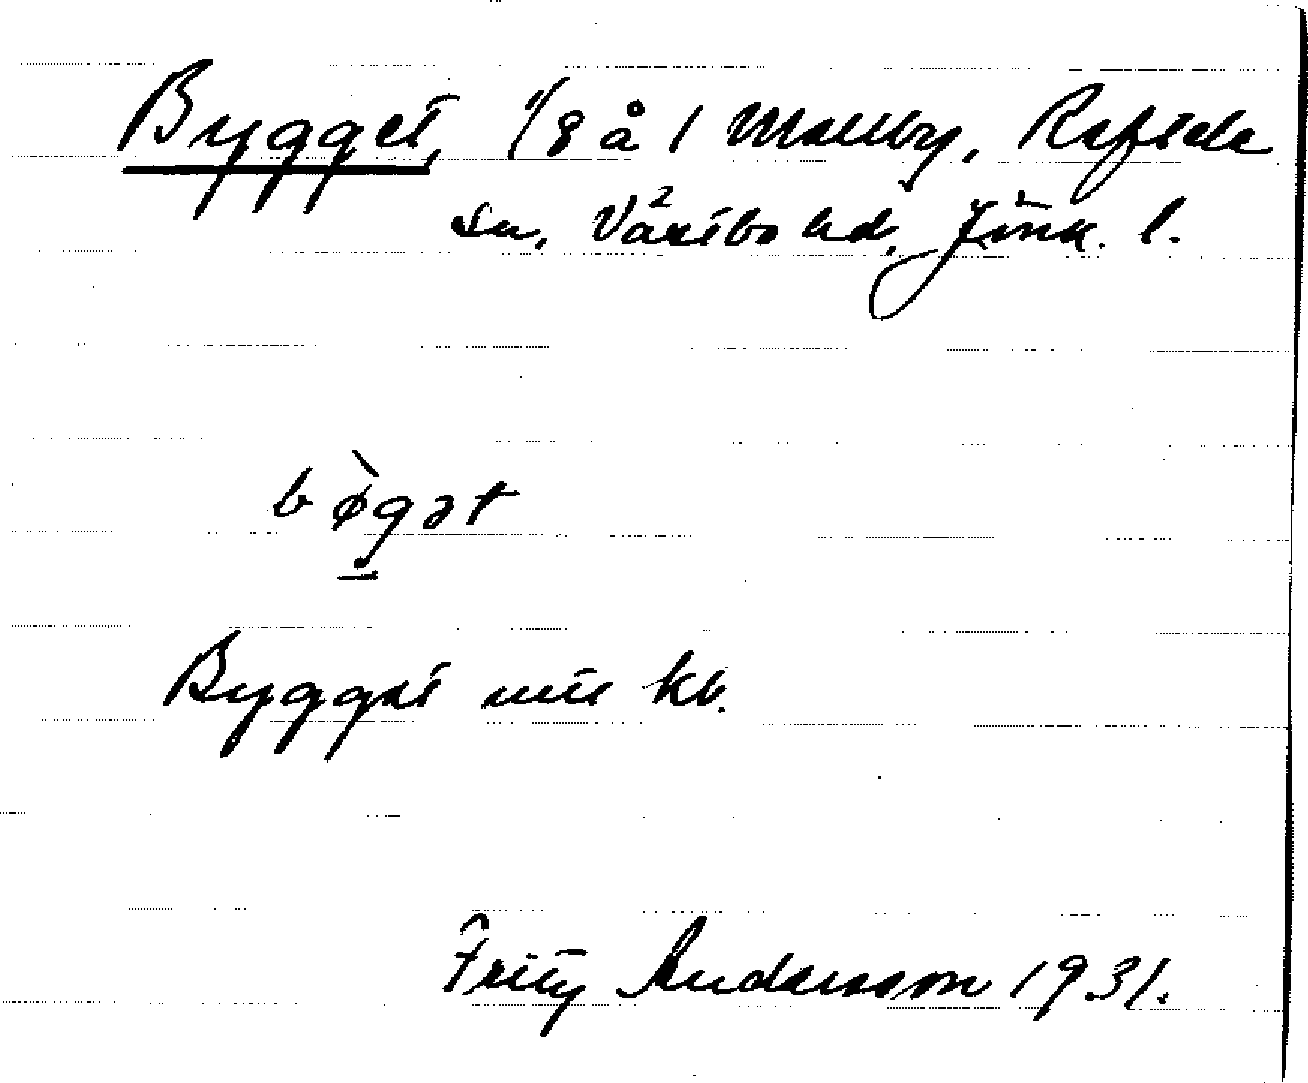 Bygget, 1/8 å 1 Mallby, Reftele
sn, Västbo hd, Jönk. l.
bø̀gət
Bygget utu kb.
Frity Andersson 1931.